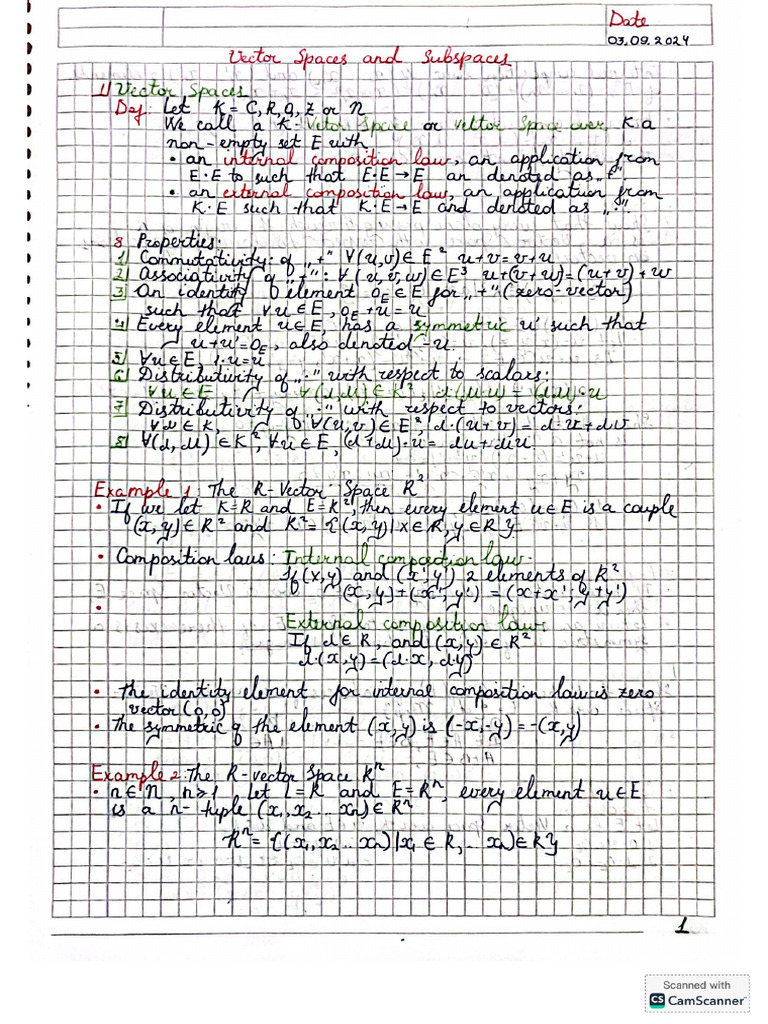 Date
03.09.2024
Vector Spaces and Subspaces
1) Vector Spaces
Def: Let K = C, R, Q, Z or N
We call a K-Vetor Space or vettor Space over K a
non-empty set E with
• an internal composition law, an application from
E·E to such that E·E→E an denoted as „+"
• an external composition law, an application from
K·E such that K·E→E and denoted as „·".
8 Properties:
1) Commutativity: of „+" ∀(u,v)∈E² u+v=v+u
2) Associativity of „+": ∀(u,v,w)∈E³ u+(v+w)=(u+v)+w
3) An identity element 0_E∈E for „+" (zero-vector)
such that ∀u∈E, 0_E+u=u
4) Every element u∈E, has a symmetric u' such that
u+u'=0_E, also denoted -u.
5) ∀u∈E, 1·u=u
6) Distributivity of „·" with respect to scalars:
∀u∈E
7) Distributivity of „·" with respect to vectors:
∀(u,v)∈E², d·(u+v)=d·u+dv
8) ∀(d,μ)∈K², ∀u∈E, (d+μ)·u=du+μu
Example 1: The R-Vector Space R²
• If we let K=R and E=R², then every element u∈E is a couple
(x,y)∈R² and R²={(x,y)|x∈R, y∈R}
• Composition laws: Internal composition law:
If (x,y) and (x',y') 2 elements of R²
(x,y)+(x',y')=(x+x'; y+y')
•
External composition law:
If d∈R, and (x,y)∈R²
d·(x,y)=(d·x, d·y)
• The identity element for internal composition law is zero
vector (0,0)
• The symmetric of the element (x,y) is (-x,-y)=-(x,y)
Example 2: The R-vector Space Rⁿ
• n∈N, n>1 Let l=R and E=Rⁿ, every element u∈E
is a n-tuple (x₁,x₂...xₙ)∈Rⁿ
Rⁿ={(x₁,x₂...xₙ)|x₁∈R,...xₙ)∈R}
1
Scanned with
CS CamScanner